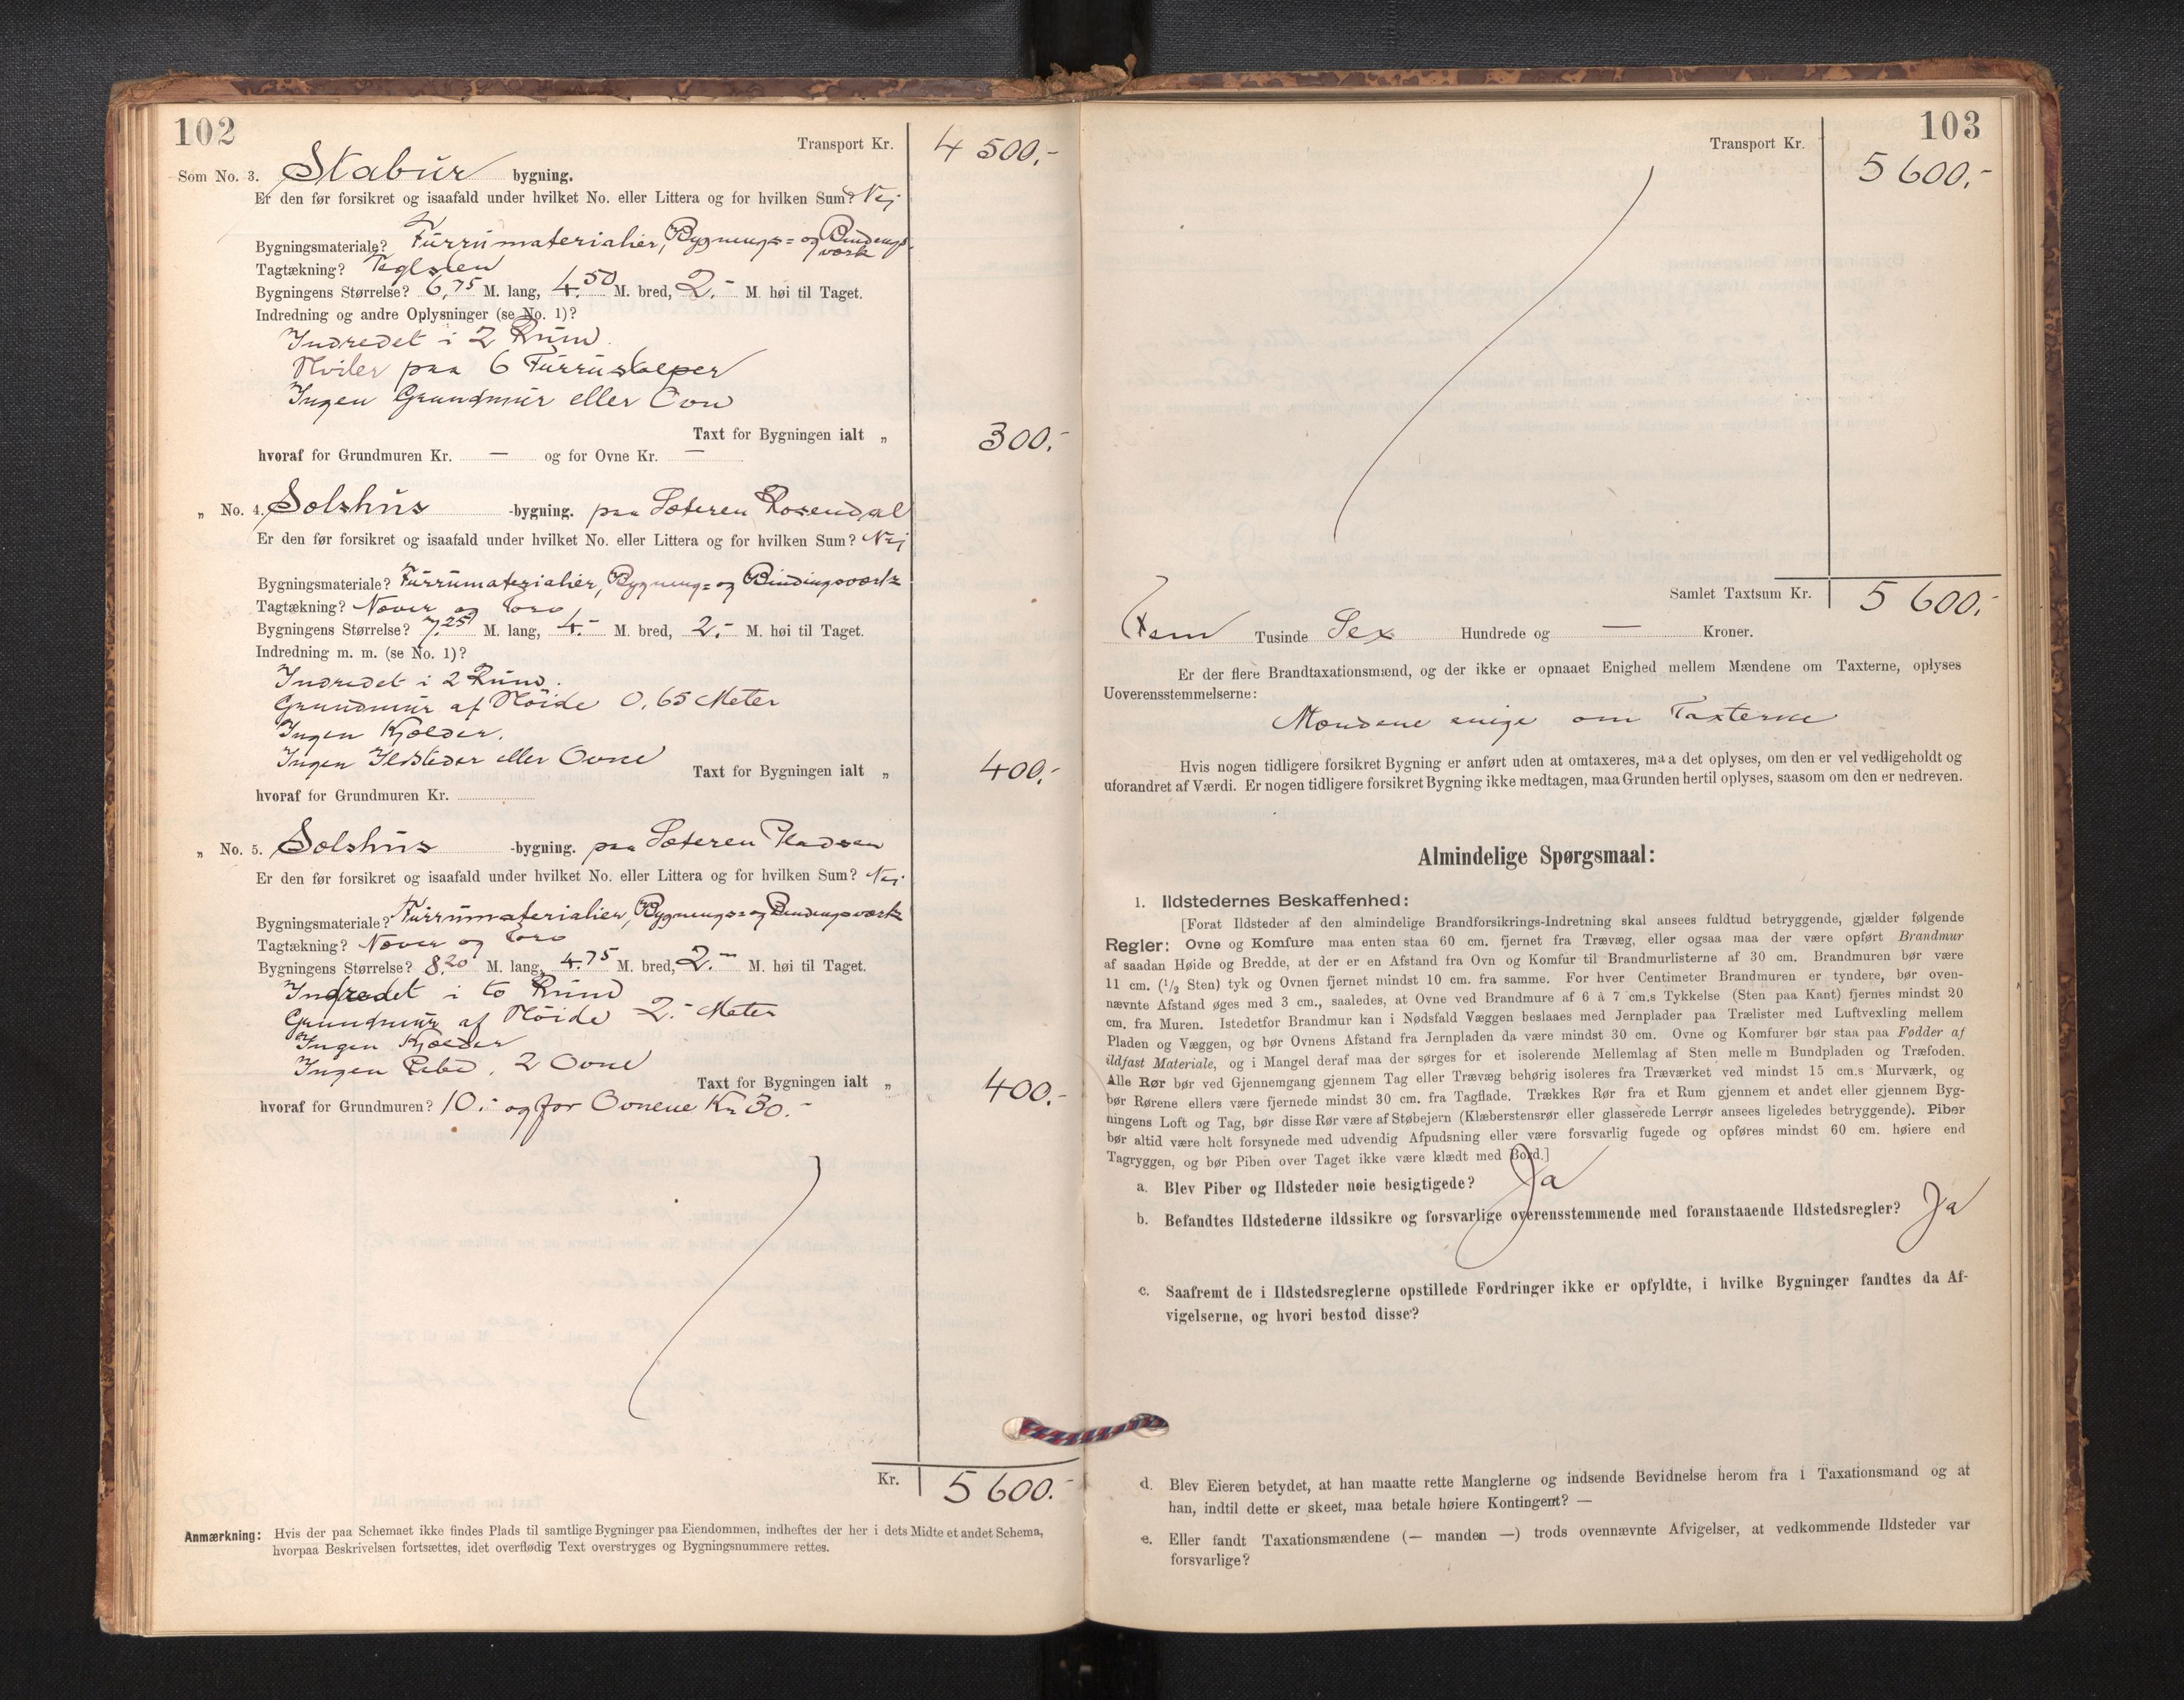 102
Transport Kr. 4 500.-
Som No. 3. Stabur bygning.
Er den før forsikret og isaafald under hvilket No. eller Littera og for hvilken Sum? Nej
Bygningsmateriale? Furrumaterialier, Bygnings= og Bindings
værk
Tagtækning? Teglsten
Bygningens Størrelse? 6,75 M. lang, 4.50 M. bred, 2.- M. høi til Taget.
Indredning og andre Oplysninger (se No. 1)?
Indredet i 2 Rum.
Hviler paa 6 Furrustolper
Ingen Grundmur eller Ovn
Taxt for Bygningen ialt „ 300.-
hvoraf for Grundmuren Kr. — og for Ovne Kr. —
„ No. 4. Selshus -bygning. paa Sæteren Rosendal
Er den før forsikret og isaafald under hvilket No. eller Littera og for hvilken Sum? Nej
Bygningsmateriale? Furrumaterialier, Bygning= og Bindingsværk
Tagtækning? Næver og Torv
Bygningens Størrelse? 7.25 M. lang, 4.- M. bred, 2.- M. høi til Taget.
Indredning m. m. (se No. 1)?
Indredet i 2 Rum.
Grundmur af Høide 0,65 Meter
Ingen Kjælder.
Ingen Ildsteder eller Ovne
Taxt for Bygningen ialt „ 400.-
hvoraf for Grundmuren Kr.
„ No. 5. Selshus -bygning. paa Sæteren Pladsen
Er den før forsikret og isaafald under hvilket No. eller Littera og for hvilken Sum? Nei
Bygningsmateriale? Furrumaterialier, Bygnings= og Bindingsværk
Tagtækning? Næver og Torv
Bygningens Størrelse? 8,20 M. lang, 4.75 M. bred, 2.- M. høi til Taget.
Indredet i to Rum
Grundmur af Høide 2.- Meter
Ingen Kjælder
Ingen Pibe, 2 Ovne
Taxt for Bygningen ialt „ 400.-
hvoraf for Grundmuren? 10.- og for Ovnene Kr 30.-
Kr. 5 600.-
Anmærkning: Hvis der paa Schemaet ikke findes Plads til samtlige Bygninger paa Eiendommen, indheftes der her i dets Midte et andet Schema,
hvorpaa Beskrivelsen fortsættes, idet overflødig Text overstryges og Bygningsnummere rettes.
103
Transport Kr. 5 600.-
Samlet Taxtsum Kr. 5 600.-
Fem Tusinde Sex Hundrede og — Kroner.
Er der flere Brandtaxationsmænd, og der ikke er opnaaet Enighed mellem Mændene om Taxterne, oplyses
Uoverensstemmelserne:
Mændene enige om Taxterne
Hvis nogen tidligere forsikret Bygning er anført uden at omtaxeres, maa det oplyses, om den er vel vedligeholdt og
uforandret af Værdi. Er nogen tidligere forsikret Bygning ikke medtagen, maa Grunden hertil oplyses, saasom om den er nedreven.
Almindelige Spørgsmaal:
1. Ildstedernes Beskaffenhed:
[Forat Ildsteder af den almindelige Brandforsikrings-Indretning skal ansees fuldtud betryggende, gjælder følgende
Regler: Ovne og Komfure maa enten staa 60 cm. fjernet fra Trævæg, eller ogsaa maa der være opført Brandmur
af saadan Høide og Bredde, at der er en Afstand fra Ovn og Komfur til Brandmurlisterne af 30 cm. Brandmuren bør være
11 cm. (1/2 Sten) tyk og Ovnen fjernet mindst 10 cm. fra samme. For hver Centimeter Brandmuren er tyndere, bør oven-
nævnte Afstand øges med 3 cm., saaledes, at Ovne ved Brandmure af 6 à 7 cm.s Tykkelse (Sten paa Kant) fjernes mindst 20
cm. fra Muren. Istedetfor Brandmur kan i Nødsfald Væggen beslaaes med Jernplader paa Trælister med Luftvexling mellem
Pladen og Væggen, og bør Ovnens Afstand fra Jernpladen da være mindst 30 cm. Ovne og Komfurer bør staa paa Fødder af
ildfast Materiale, og i Mangel deraf maa der sørges for et isolerende Mellemlag af Sten mellem Bundpladen og Træfoden.
Alle Rør bør ved Gjennemgang gjennem Tag eller Trævæg behørig isoleres fra Træværket ved mindst 15 cm.s Murværk, og
bør Rørene ellers være fjernede mindst 30 cm. fra Tagflade. Trækkes Rør fra et Rum gjennem et andet eller gjennem Byg-
ningens Loft og Tag, bør disse Rør være af Støbejern (Klæberstensrør eller glasserede Lerrør ansees ligeledes betryggende). Piber
bør altid være helt forsynede med udvendig Afpudsning eller være forsvarlig fugede og opføres mindst 60 cm. høiere end
Tagryggen, og bør Piben over Taget ikke være klædt med Bord.]
a. Blev Piber og Ildsteder nøie besigtigede? Ja
b. Befandtes Ildstederne ildssikre og forsvarlige overensstemmende med foranstaaende Ildstedsregler? Ja
c. Saafremt de i Ildstedsreglerne opstillede Fordringer ikke er opfyldte, i hvilke Bygninger fandtes da Af-
vigelserne, og hvori bestod disse?
d. Blev Eieren betydet, at han maatte rette Manglerne og indsende Bevidnelse herom fra 1 Taxationsmand og at
han, indtil dette er skeet, maa betale høiere Kontingent? —
e. Eller fandt Taxationsmændene (— manden —) trods ovennævnte Afvigelser, at vedkommende Ildsteder var
forsvarlige?